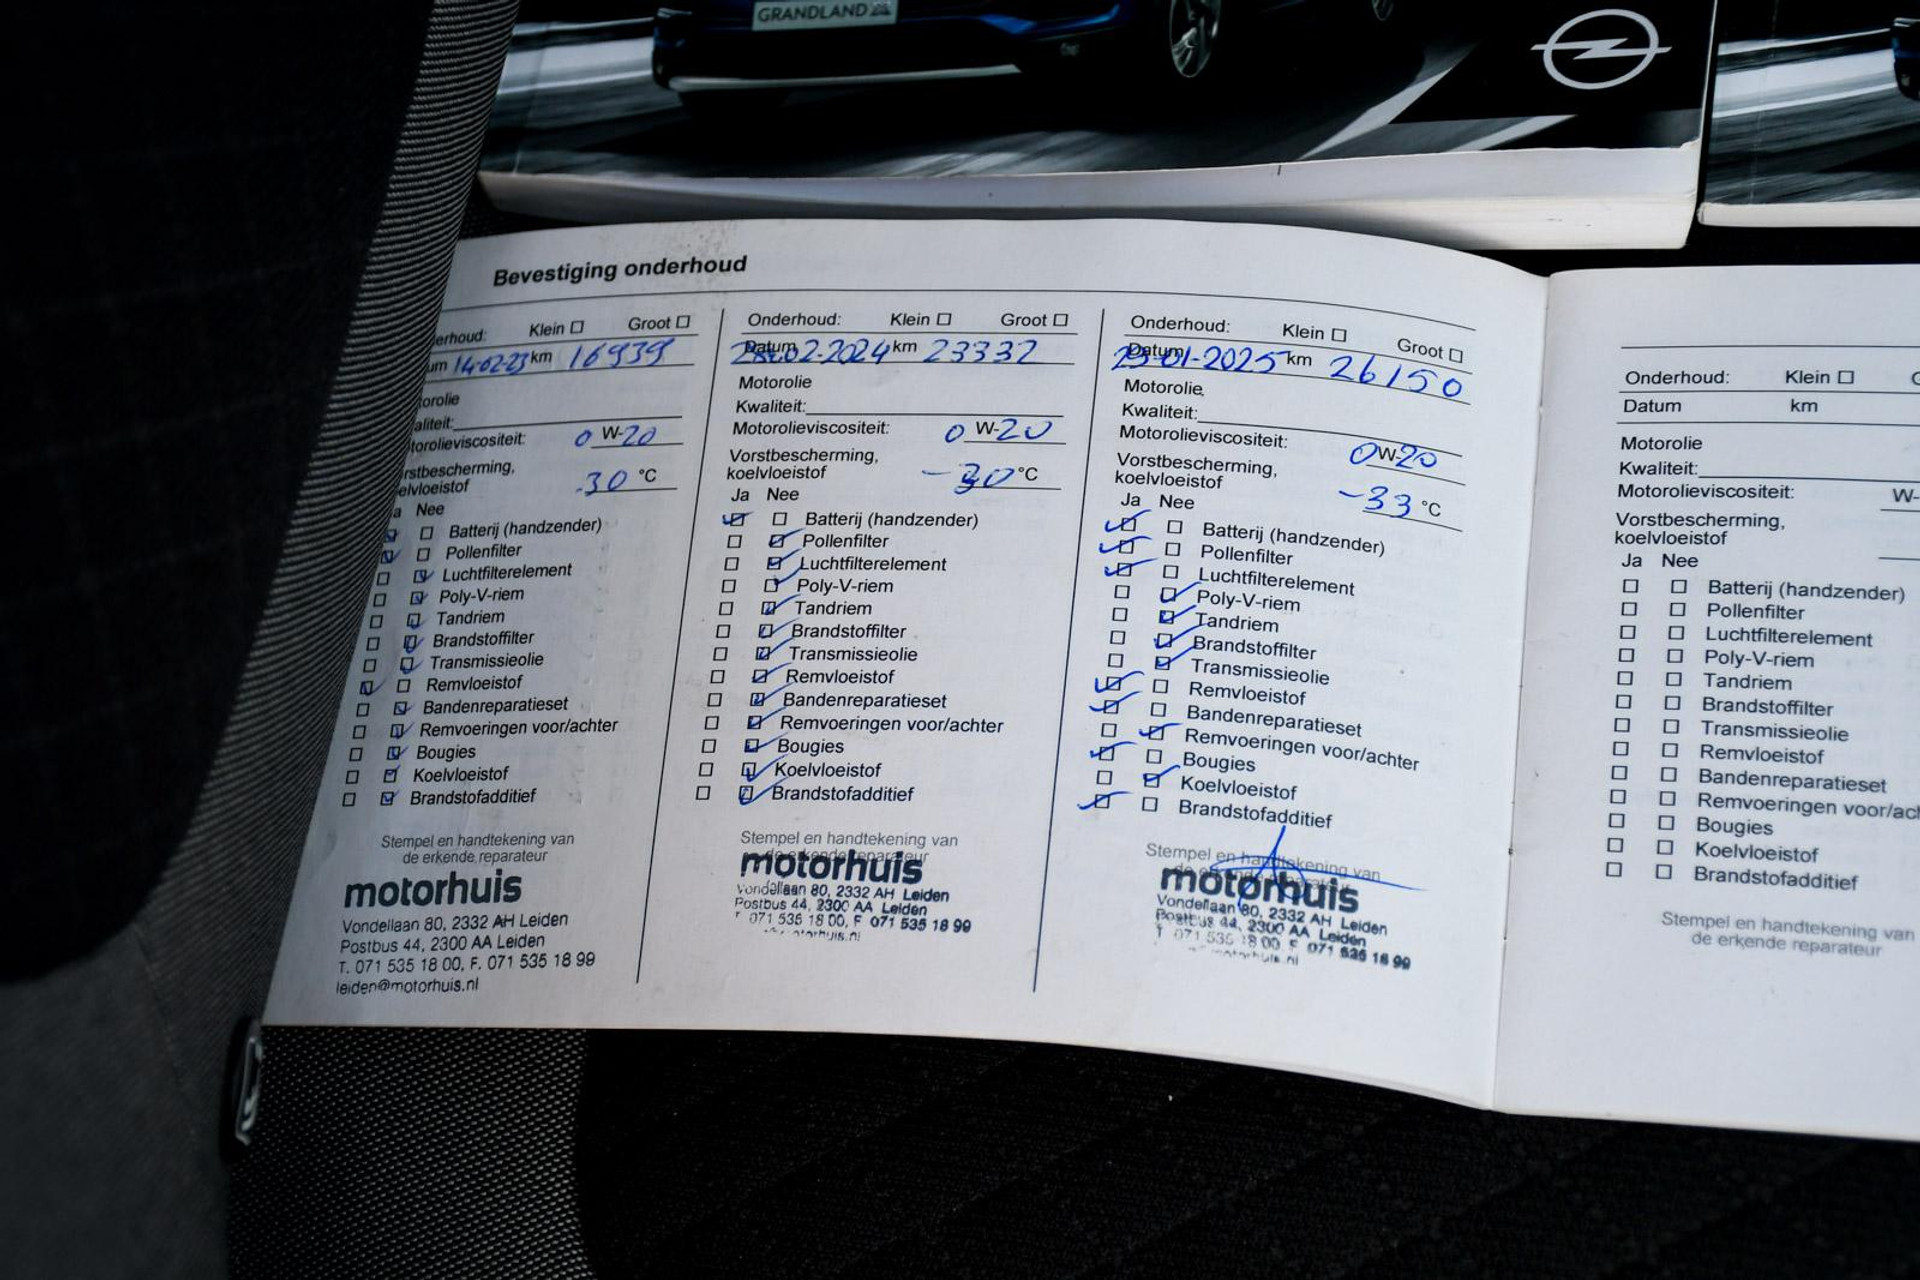 GRANDLAND X
Bevestiging onderhoud
erhoud: Klein Groot
um 14-02-23 km 16939
torolie
aliteit:
torolieviscositeit: 0 W-20
rstbescherming,
elvloeistof -30 °C
a Nee
Batterij (handzender)
Pollenfilter
Luchtfilterelement
Poly-V-riem
Tandriem
Brandstoffilter
Transmissieolie
Remvloeistof
Bandenreparatieset
Remvoeringen voor/achter
Bougies
Koelvloeistof
Brandstofadditief
Stempel en handtekening van
de erkende reparateur
motorhuis
Vondellaan 80, 2332 AH Leiden
Postbus 44, 2300 AA Leiden
T. 071 535 18 00, F. 071 535 18 99
leiden@motorhuis.nl
Onderhoud: Klein Groot
Datum 02-2024 km 23332
Motorolie
Kwaliteit:
Motorolieviscositeit: 0 W-20
Vorstbescherming,
koelvloeistof -30 °C
Ja Nee
Batterij (handzender)
Pollenfilter
Luchtfilterelement
Poly-V-riem
Tandriem
Brandstoffilter
Transmissieolie
Remvloeistof
Bandenreparatieset
Remvoeringen voor/achter
Bougies
Koelvloeistof
Brandstofadditief
Stempel en handtekening van
de erkende reparateur
motorhuis
Vondellaan 80, 2332 AH Leiden
Postbus 44, 2300 AA Leiden
071 535 18 00, F 071 535 18 99
motorhuis.nl
Onderhoud: Klein Groot
Datum 01-2025 km 26150
Motorolie
Kwaliteit:
Motorolieviscositeit: 0W-20
Vorstbescherming,
koelvloeistof -33 °C
Ja Nee
Batterij (handzender)
Pollenfilter
Luchtfilterelement
Poly-V-riem
Tandriem
Brandstoffilter
Transmissieolie
Remvloeistof
Bandenreparatieset
Remvoeringen voor/achter
Bougies
Koelvloeistof
Brandstofadditief
Stempel en handtekening van
de erkende reparateur
motorhuis
Vondellaan 80, 2332 AH Leiden
Postbus 44, 2300 AA Leiden
T 071 535 18 00, F 071 535 18 99
motorhuis.nl
Onderhoud: Klein
Datum km
Motorolie
Kwaliteit:
Motorolieviscositeit: W-
Vorstbescherming,
koelvloeistof
Ja Nee
Batterij (handzender)
Pollenfilter
Luchtfilterelement
Poly-V-riem
Tandriem
Brandstoffilter
Transmissieolie
Remvloeistof
Bandenreparatieset
Remvoeringen voor/ach
Bougies
Koelvloeistof
Brandstofadditief
Stempel en handtekening van
de erkende reparateur